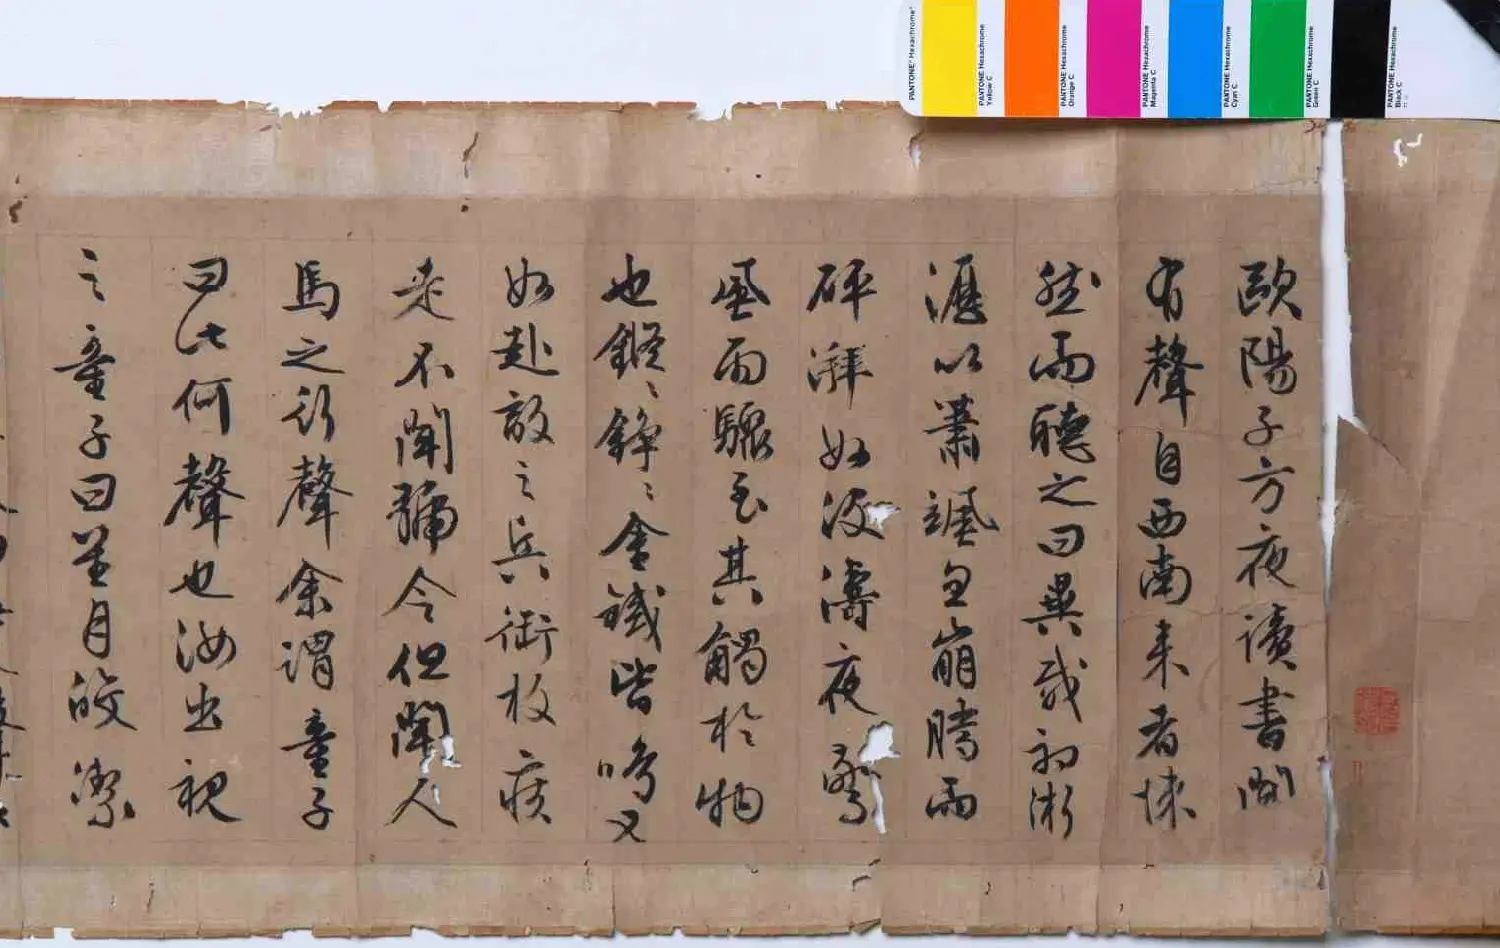 PANTONE® Hexachrome®
PANTONE Hexachrome
Yellow C
PANTONE Hexachrome
Orange C
PANTONE Hexachrome
Magenta C
PANTONE Hexachrome
Cyan C
PANTONE Hexachrome
Green C
PANTONE Hexachrome
Black C
歐陽子方夜讀書聞
有聲自西南来者悚
然而聽之曰異哉初淅
瀝以蕭颯忽崩騰而
砰湃如波濤夜驚
風雨驟至其觸於物
也鏦〻錚〻金鐵皆鳴又
如赴敵之兵銜枚疾
走不聞號令但聞人
馬之行聲余謂童子
曰此何聲也汝出視
之童子曰星月皎潔